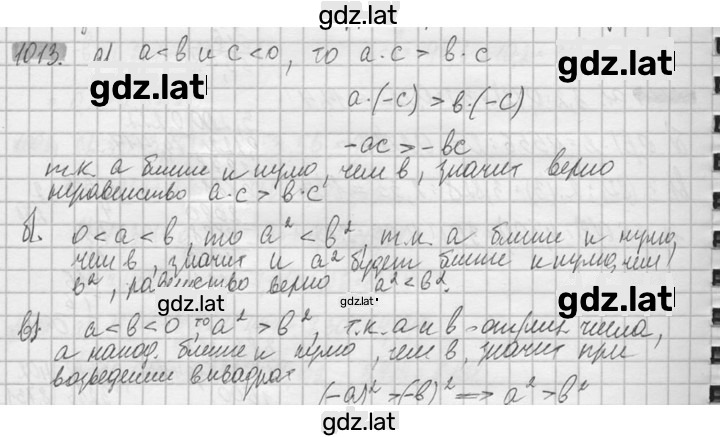 gdz.lat
1013. а) a < в и c < 0, то a·c > в·c
gdz.lat
gdz.lat
a·(-c) > в·(-c)
-ac > -вc
т.к. а ближе к нулю, чем в, значит верно
неравенство a·c > в·c
б). 0 < a < в, то a² < в², т.к. а ближе к нулю,
чем в, значит и a² будет ближе к нулю, чем
в², равенство верно a² < в².
gdz.lat
gdz.lat
в). a < в < 0, то a² > в², т.к. а и в - отриц. числа,
а наход. ближе к нулю, чем в, значит при
возведении в квадрат
(-a)² > (-в)² => a² > в²
gdz.lat